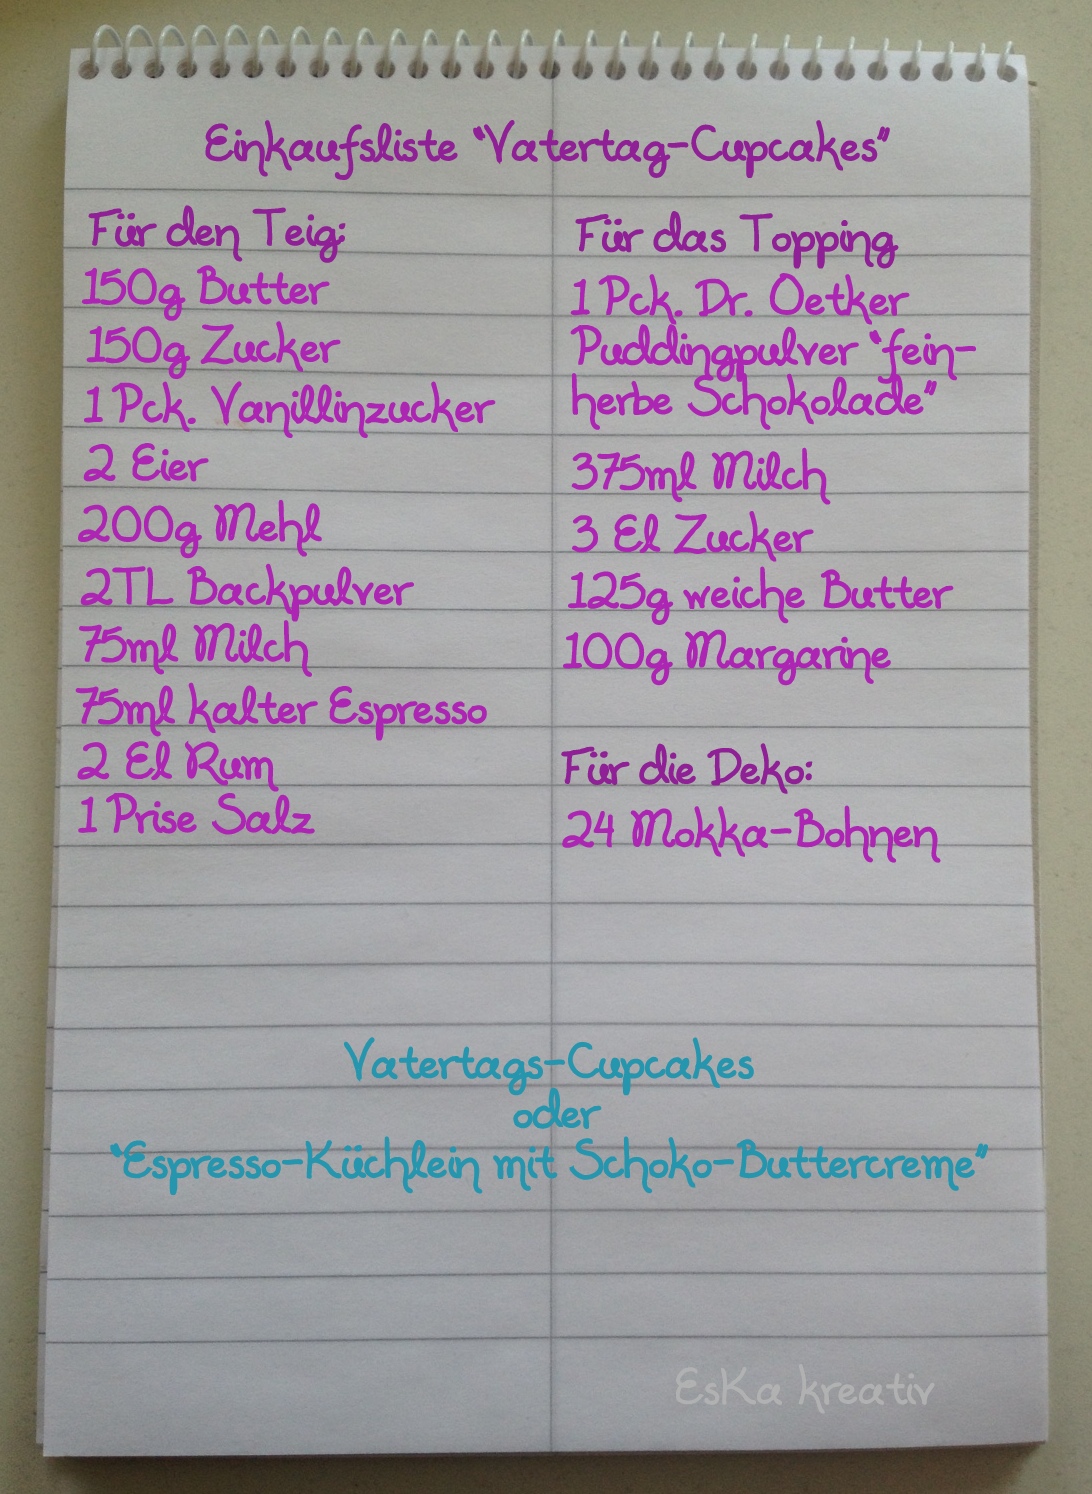 Einkaufsliste "Vatertag-Cupcakes"
Für den Teig:
150g Butter
150g Zucker
1 Pck. Vanillinzucker
2 Eier
200g Mehl
2TL Backpulver
75ml Milch
75ml kalter Espresso
2 El Rum
1 Prise Salz
Für das Topping
1 Pck. Dr. Oetker
Puddingpulver "fein-
herbe Schokolade"
375ml Milch
3 El Zucker
125g weiche Butter
100g Margarine
Für die Deko:
24 Mokka-Bohnen
Vatertags-Cupcakes
oder
"Espresso-Küchlein mit Schoko-Buttercreme"
EsKa kreativ